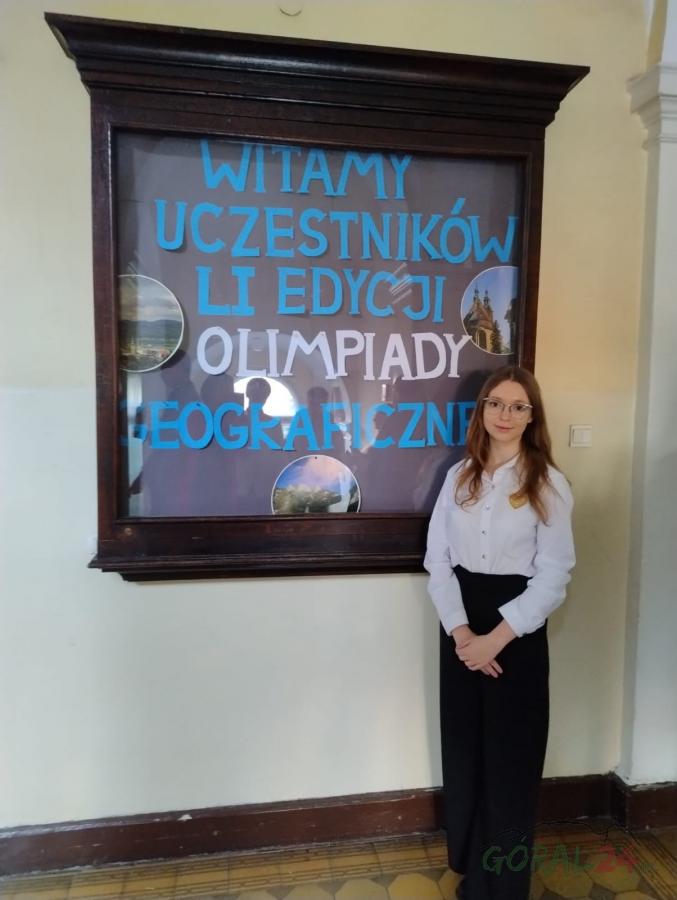 WITAMY
UCZESTNIKÓW
LI EDYCJI
OLIMPIADY
GEOGRAFICZNE
GÓRAL24